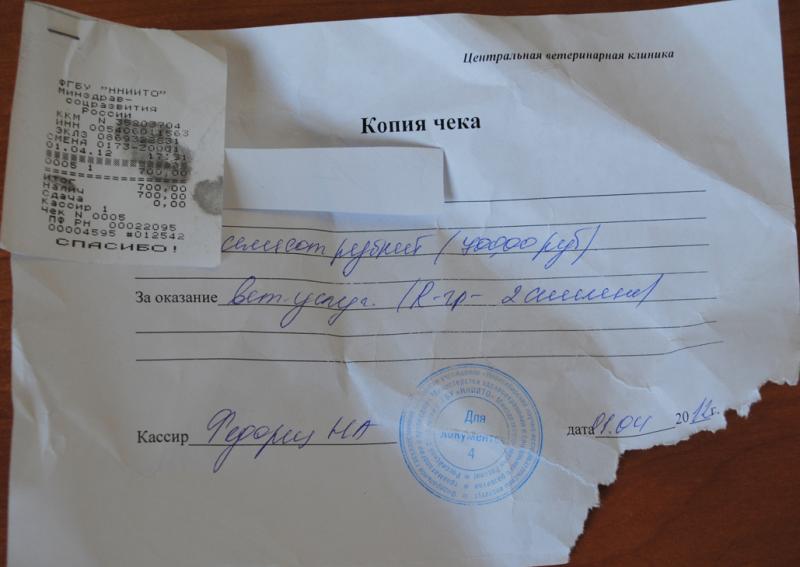 Центральная ветеринарная клиника
Копия чека
ФГБУ "ННИИТО"
Минздрав-
соцразвития
России
ККМ N 35203704
ИНН 005406011563
ЭКЛЗ
СМЕНА 0173-20001
01.04.12 17:31
0005 1 700,00
ИТОГ 700,00
НАЛИЧ 700,00
СДАЧА 0,00
КАССИР 1
ЧЕК N 0005
ПФ РН 00022095
00004595 #012542
СПАСИБО!
семьсот рублей (700,00 руб)
За оказание вет. услуг. (R-гр-
Кассир Федорец НА
дата 01.04 2012г.
Для
документов
4